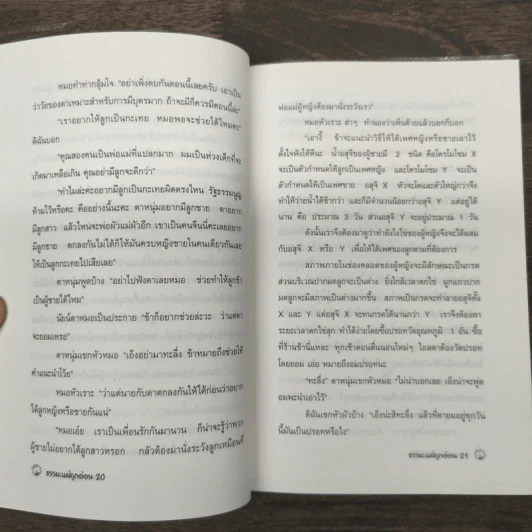 หมอทำท่ากลุ้มใจ "อย่าเพิ่งตบกันตอนนี้เลยครับ เอาเป็น
ว่าวัยของตาเหมาะสำหรับการมีบุตรมาก ถ้าจะมีก็ควรมีตอนนี้ล่ะ"
"เราอยากให้ลูกเป็นกะเทย หมอพอจะช่วยได้ไหมคะ"
ดิฉันบอก
"คุณสองคนเป็นพ่อแม่ที่แปลกมาก ผมเป็นห่วงเด็กที่จะ
เกิดมาเหลือเกิน คุณอย่ามีลูกจะดีกว่า"
"ทำไมล่ะคะอยากมีลูกเป็นกะเทยผิดตรงไหน รัฐธรรมนูญ
ห้ามไว้หรือคะ คืออย่างนี้นะคะ ตาหนุ่มอยากมีลูกชาย ตาอยาก
มีลูกสาว แล้วไหนจะพ่อผัวแม่ผัวอีก เขาเป็นคนจีนนี่คะเลยอยาก
มีลูกชาย ตกลงกันไม่ได้ก็ให้มันครบหญิงชายในคนเดียวกันเลย
ให้เป็นลูกกะเทยไปเสียเลย"
ตาหนุ่มพูดบ้าง "อย่าไปฟังตาเลยหมอ ช่วยทำให้ลูกข้า
เป็นผู้ชายได้ไหม"
นัยน์ตาหมอเป็นประกาย "ข้าก็อยากช่วยล่ะวะ ว่าแต่ตา
จะยอมเหรอ"
ตาหนุ่มเขกหัวหมอ "เอ็งอย่ามาทะลึ่ง ข้าหมายถึงช่วยให้
คำแนะนำไว้ย"
หมอหัวเราะ "ว่าแต่นายกับตาตกลงกันให้ได้ก่อนว่าอยาก
ได้ลูกหญิงหรือชายกันแน่"
"หมอเอ๋ย เราเป็นเพื่อนรักกันมานาน ก็น่าจะรู้ว่าพวก
ผู้ชายไม่อยากได้ลูกสาวหรอก กลัวต้องมานั่งระวังลูกเหมือนที่
ธรรมะแม่ลูกอ่อน 20
พ่อแม่ผู้หญิงต้องมานั่งระวังเรา"
หมอหัวเราะ ฮ่าๆ ทำนองว่าเห็นด้วยแล้วบอกกับอก
"เอางี้ ข้าจะแนะนำวิธีให้ได้เพศหญิงหรือชายเอาไว้
ตั้งใจฟังให้ดีนะ น้ำอสุจิของผู้ชายมี 2 ชนิด คือโครโมโซม X
จะเป็นตัวกำหนดให้ลูกเป็นเพศหญิง และโครโมโซม Y จะเป็น
ตัวกำหนดให้เป็นเพศชาย อสุจิ X หัวจะโตและตัวใหญ่กว่าจึง
ทำให้ว่ายน้ำได้ช้ากว่า และก็มีจำนวนน้อยกว่าอสุจิ Y แต่อยู่ได้
นาน คือ ประมาณ 3 วัน ส่วนอสุจิ Y จะอยู่ประมาณ 1 วัน
ดังนั้นเราจึงต้องมาดูว่าทำยังไงไข่ของผู้หญิงจึงจะได้ผสม
กับอสุจิ X หรือ Y เพื่อให้ได้เพศของลูกตามที่ต้องการ
สภาพภายในช่องคลอดของผู้หญิงจะมีลักษณะเป็นกรด
ส่วนบริเวณปากมดลูกจะเป็นด่าง ยิ่งใกล้เวลาตกไข่ มูกแถวปาก
มดลูกจะมีสภาพเป็นด่างมากขึ้น สภาพเป็นกรดจะทำลายอสุจิทั้ง
X และ Y แต่อสุจิ X จะทนกรดได้นานกว่า Y เราจึงต้องหา
ระยะเวลาตกไข่สุก ทำได้ง่ายโดยซื้อปรอทวัดอุณหภูมิ 1 อัน ซื้อ
ที่ร้านข้านี่แหละ ทุกเช้าตอนตื่นนอนใหม่ๆ ไอ้ตาต้องวัดปรอท
โดยยอม เอ่อ หมายถึงอมปรอทน่ะ
"ทะลึ่ง" ตาหนุ่มเขกหัวหมอ "ไม่น่าบอกเลย เอ็งน่าจะพูด
อมพะนำเอาไว้"
ดิฉันเขกหัวผัวบ้าง "เอ็งน่ะสิทะลึ่ง แล้วที่ตาอมอยู่ทุกวัน
นี้มันเป็นปรอทหรือไง"
ธรรมะแม่ลูกอ่อน 21